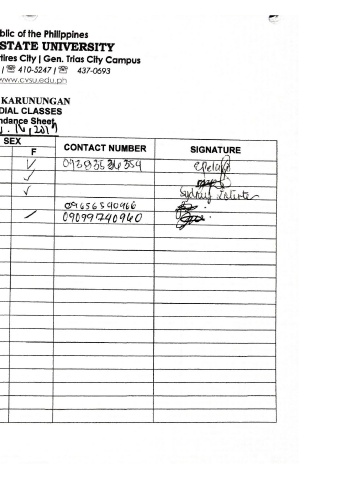 blic of the Philippines
STATE UNIVERSITY
tires City | Gen. Trias City Campus
| ☏ 410-5247 | ☏ 437-0693
www.cvsu.edu.ph
KARUNUNGAN
DIAL CLASSES
ndance Sheet
SEX
F CONTACT NUMBER SIGNATURE
✓
✓
✓ Sydney
09656590966
/ 09099740940